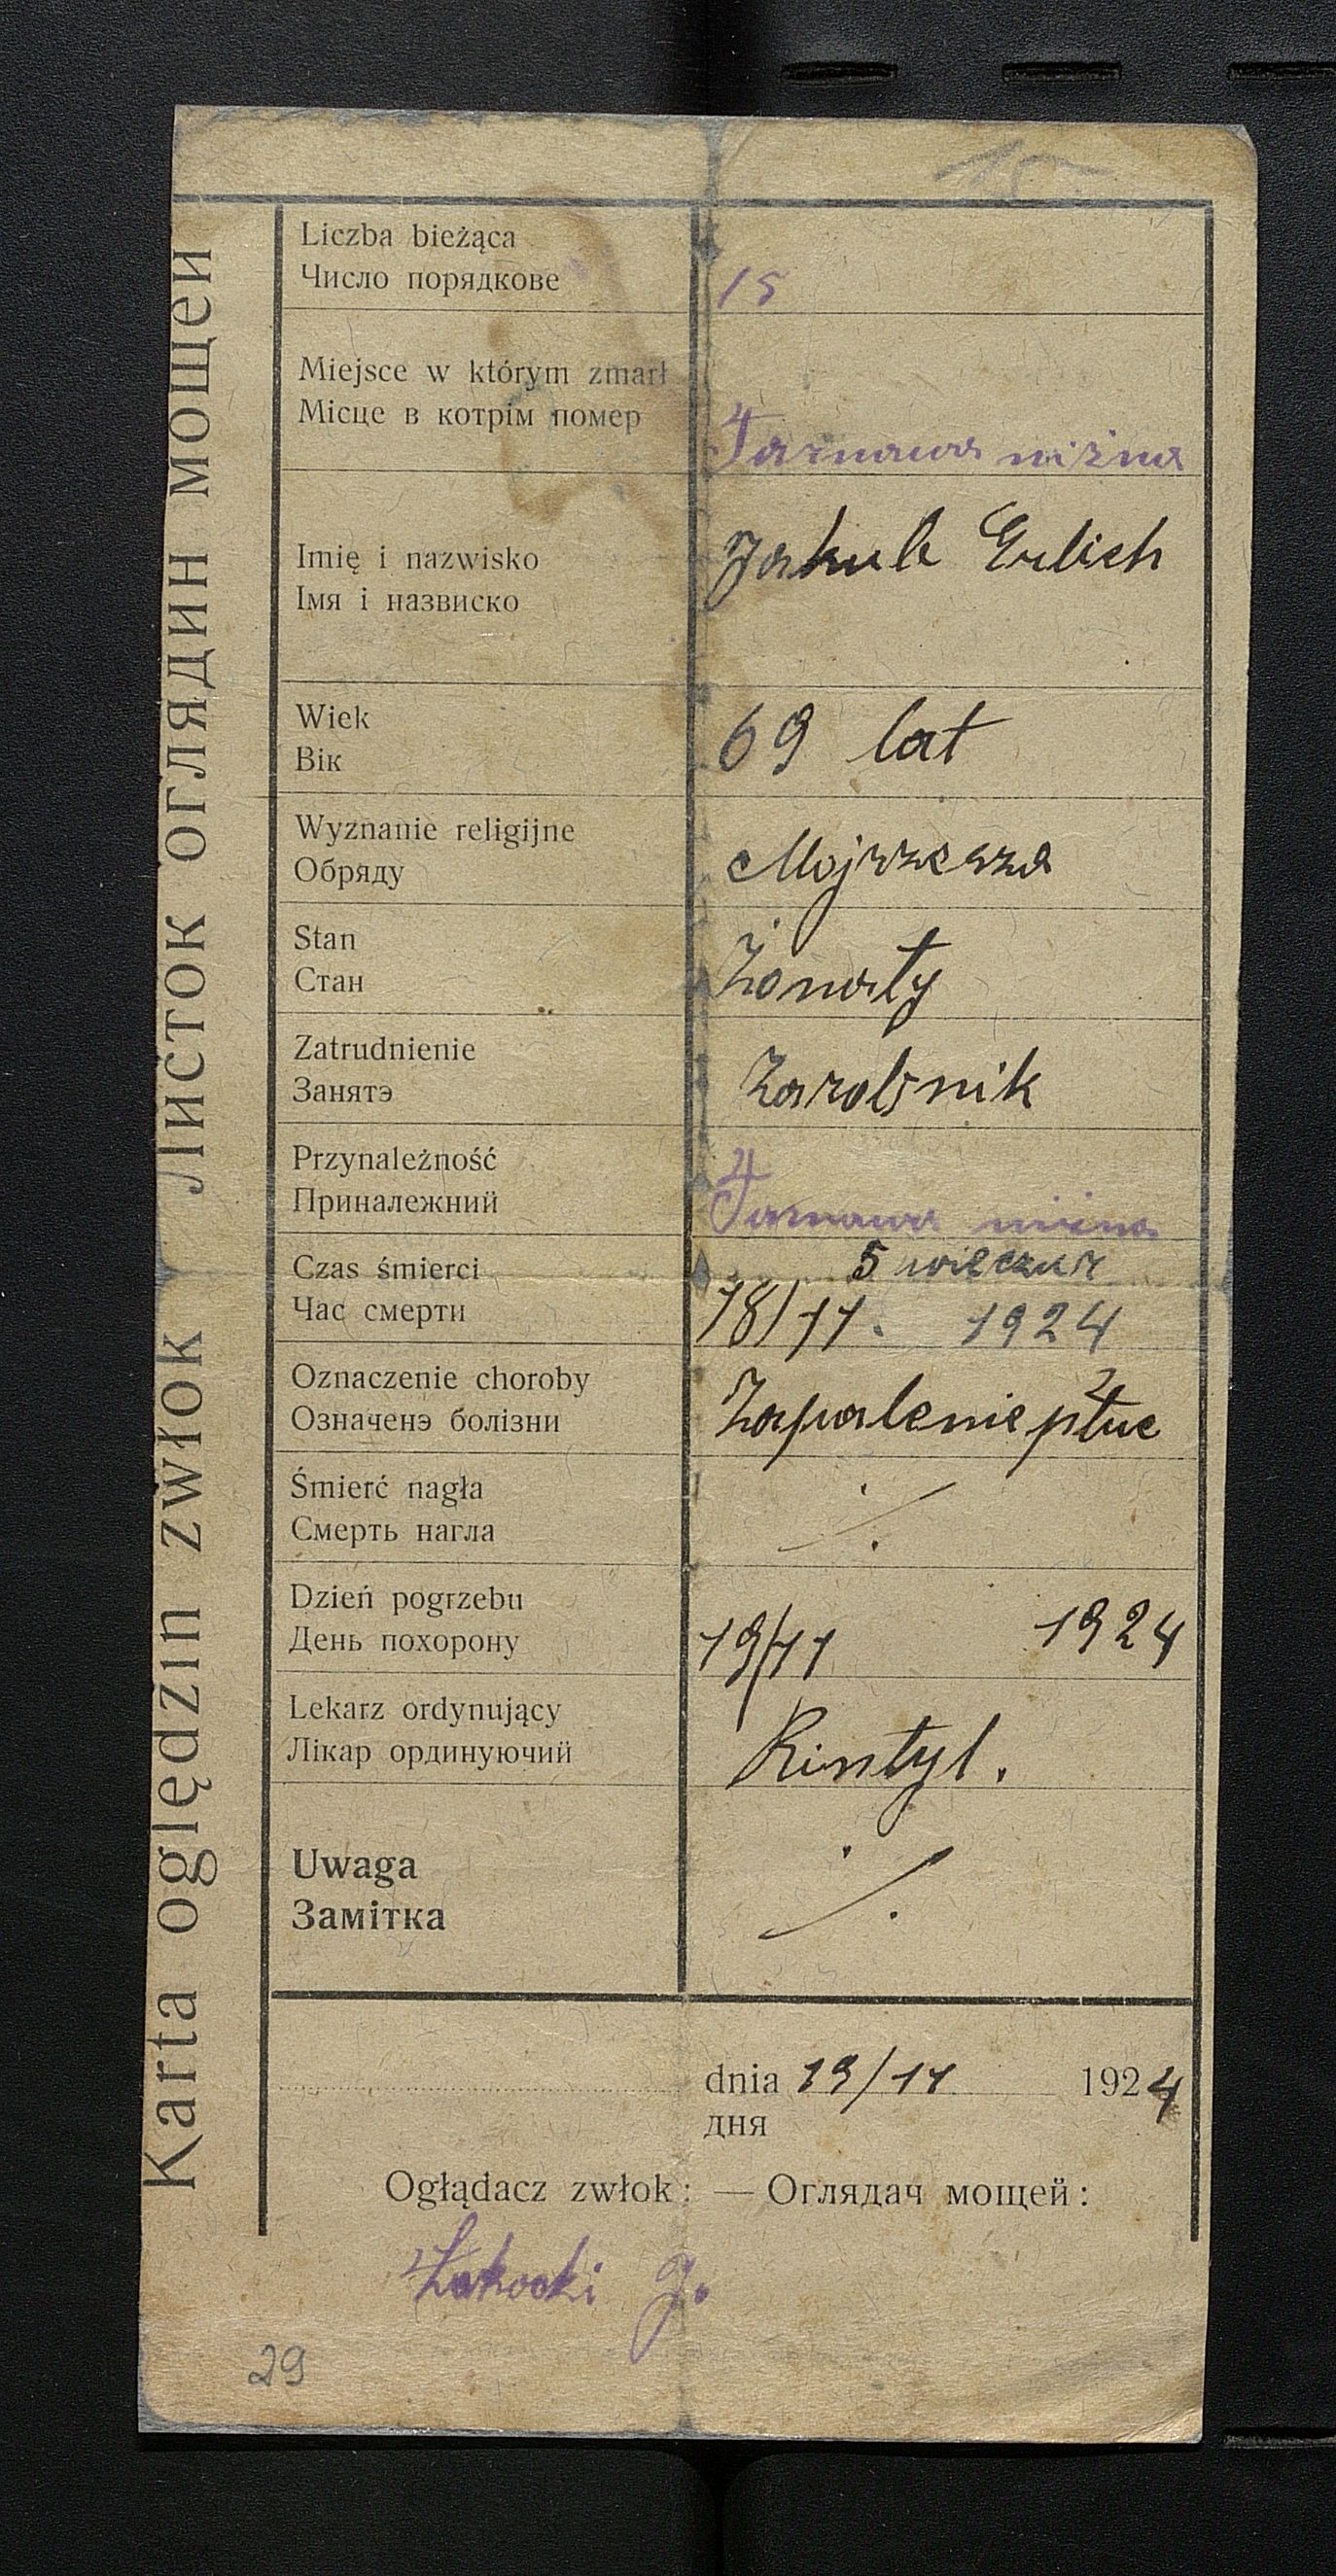 15
Karta oględzin zwłok Листок оглядин мощей
Liczba bieżąca
Число порядкове
15
Miejsce w którym zmarł
Місце в котрім помер
Tarnawa niżna
Imię i nazwisko
Імя і назвиско
Jakub Erlich
Wiek
Вік
69 lat
Wyznanie religijne
Обряду
Mojrzesza
Stan
Стан
Żonaty
Zatrudnienie
Занятэ
Zarobnik
Przynależność
Приналежний
Tarnawa niżna
Czas śmierci
Час смерти
5 wieczur
18/11. 1924
Oznaczenie choroby
Означенэ болізни
Zapalenie płuc
Śmierć nagła
Смерть нагла
Dzień pogrzebu
День похорону
19/11 1924
Lekarz ordynujący
Лікар ординуючий
Rintyl.
Uwaga
Замітка
dnia 19/11 1924
дня
Oglądacz zwłok: — Оглядач мощей:
J.
29